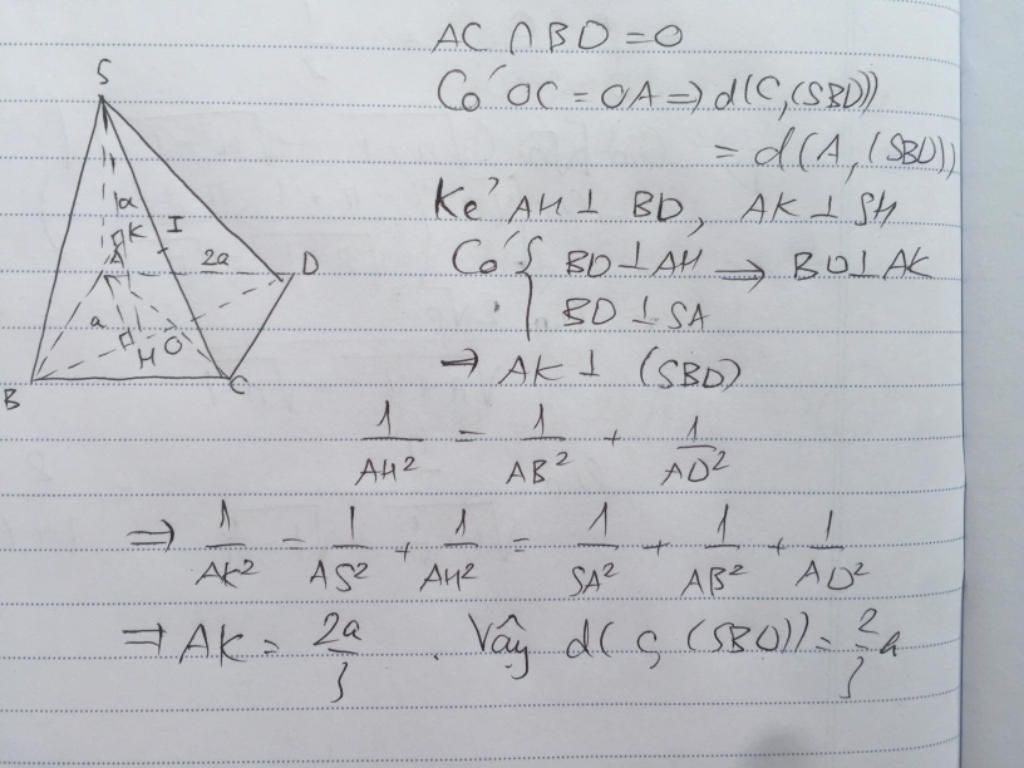 S
a
K
I
A
2a
D
a
H
O
B
C
AC ∩ BD = O
Có OC = OA ⇒ d(C, (SBD))
= d(A, (SBD))
Kẻ AH ⊥ BD, AK ⊥ SH
Có { BD ⊥ AH → BD ⊥ AK
BD ⊥ SA
→ AK ⊥ (SBD)
1/AH² = 1/AB² + 1/AD²
⇒ 1/AK² = 1/AS² + 1/AH² = 1/SA² + 1/AB² + 1/AD²
⇒ AK = 2a/3 . Vậy d(C, (SBD)) = 2/3 a